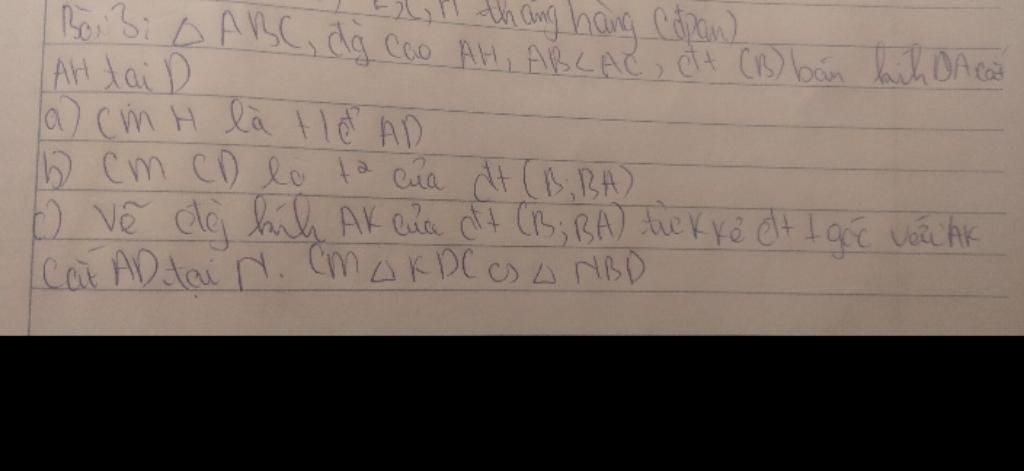 thẳng hàng (đpcm)
Bài 3: △ ABC, đg cao AH, AB < AC, đt (B) bán kính BA cắt
AH tại D
a) Cm H là tđ AD
b) Cm CD là t² của đt (B;BA)
c) Vẽ đg kính AK của đt (B;BA) từ K kẻ đt ⊥ góc với AK
Cắt AD tại N. Cm △ KDC ∽ △ NBD